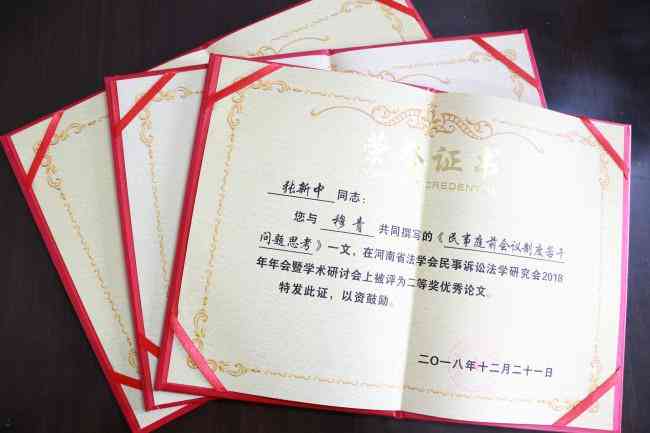 荣誉证书
CREDENTIAL
张新中 同志：
您与 穆青 共同撰写的《民事庭前会议制度若干
问题思考》一文，在河南省法学会民事诉讼法学研究会2018
年年会暨学术研讨会上被评为二等奖优秀论文。
特发此证，以资鼓励。
二〇一八年十二月二十一日